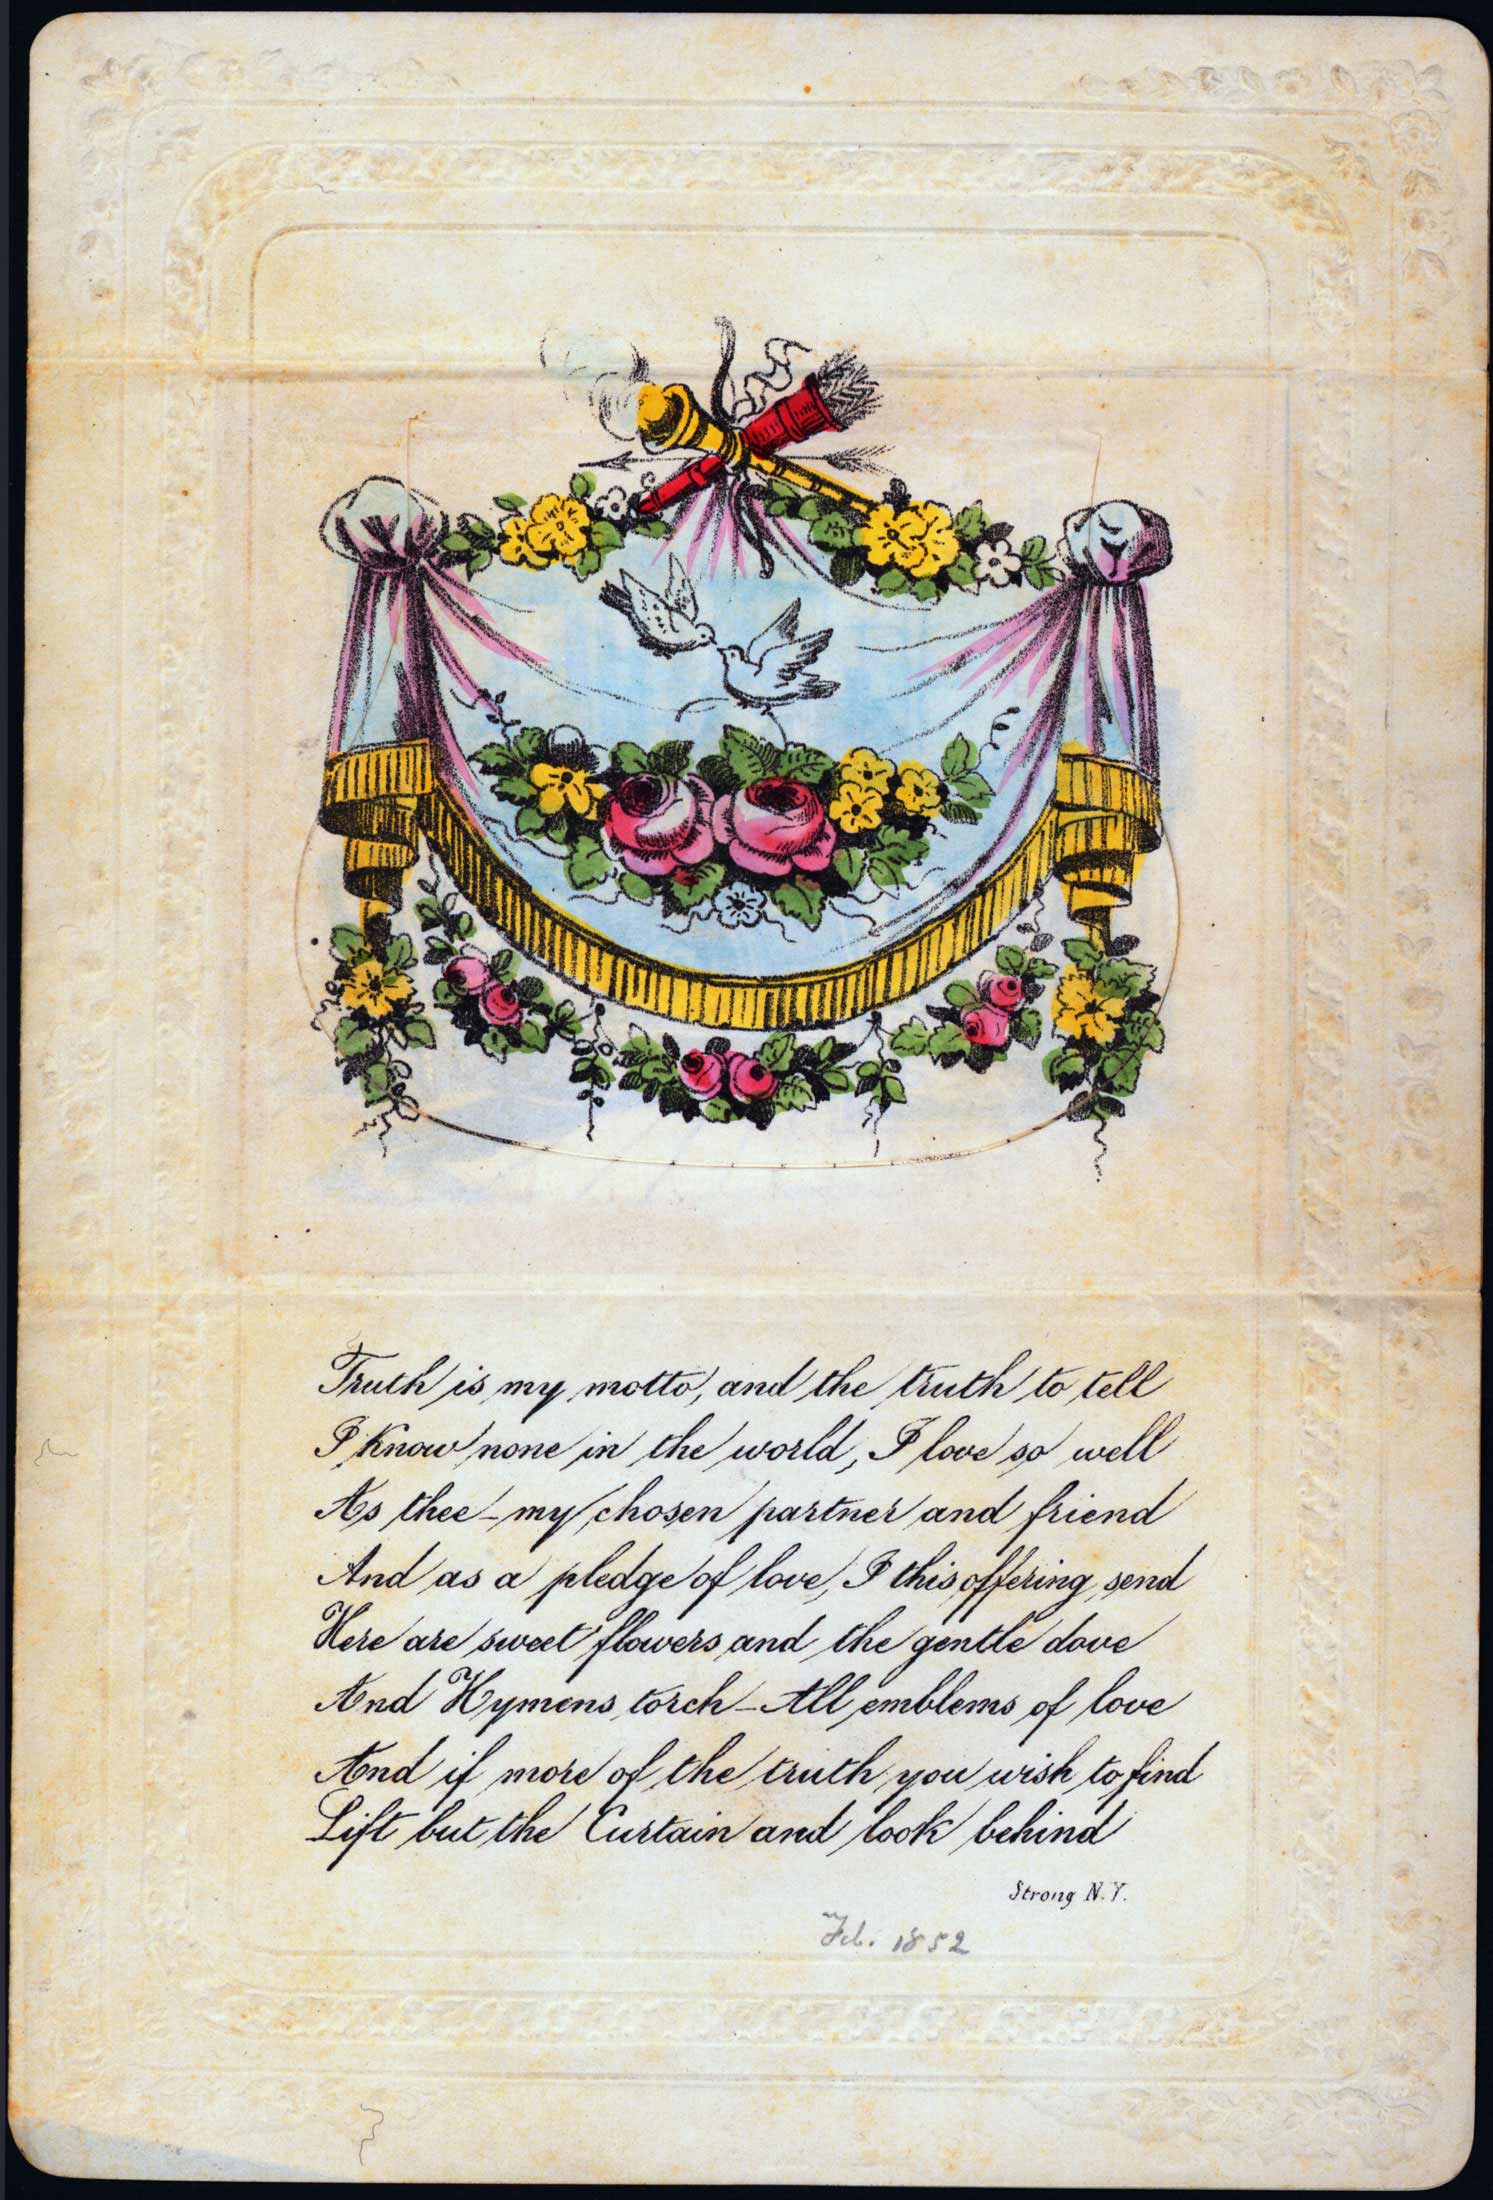 Truth is my motto, and the truth to tell
I know none in the world, I love so well
As thee – my chosen partner and friend
And as a pledge of love, I this offering send
Here are sweet flowers and the gentle dove
And Hymens torch – All emblems of love
And if more of the truth you wish to find
Lift but the Curtain and look behind
Strong N.Y.
Feb. 1852